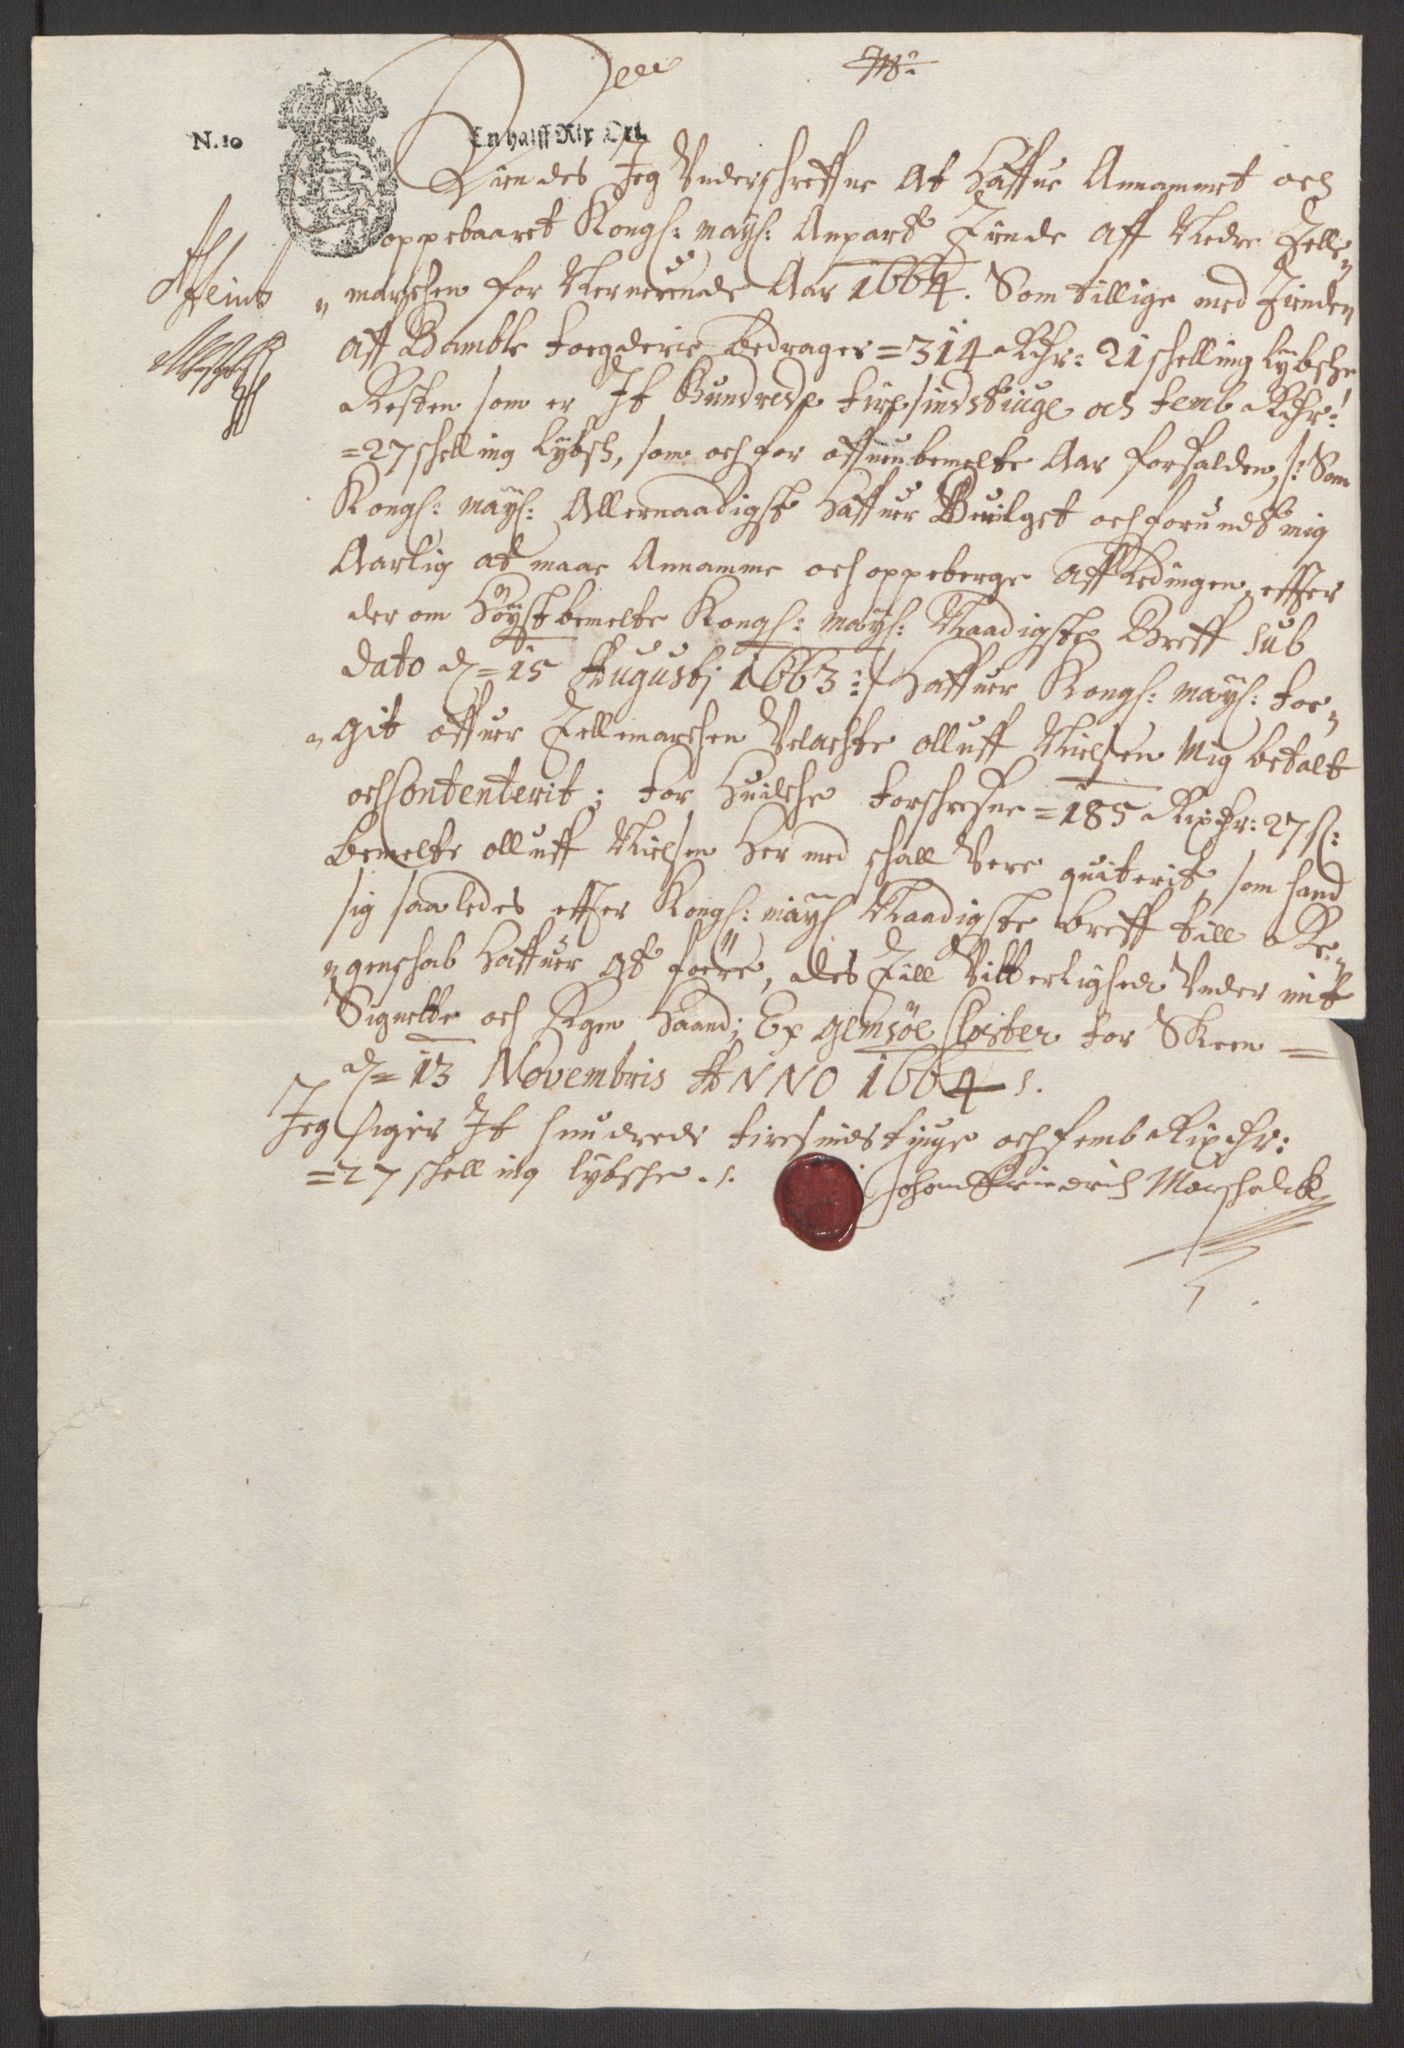 N. 10
En halff Rix Ort
Kiendes Jeg Underschreffne At Haffue Annammet och
oppebaaret Kongl: Mayt: Anpart Tiende aff Nedre Telle-
marchen for Nerverende Aar 1664. Som tillige med Tienden
aff Bamble foegderie bedrages = 314 Rdr: 21 schelling lybsche
Resten som er It Hundrede firesindstiuge och femb Rdr:
= 27 schelling Lybsch, som och for offuenbemelte Aar forfalden, /: Som
Kongl: Mayt: Allernaadigst Haffuer Beuilget och forundt mig
Aarlig at maae Annamme och oppeberge aff , effter
der om Höystbemelte Kongl: Mayt: Naadigste Breff sub
Dato d = 15 Augustj 1663 :/ Haffuer Kongl: Mayt: foe-
git offuer Tellemarchen Velachte olluff Nielsen Mig betalt
och Contenterit; for Huilche forschrefne = 185 Rixdr: 27 s:
bemelte olluff Nielsen Her med schall Vere quiterit, som hand
sig saaledes effter Kongl: Mayt Naadigste breff till Re-
genschab Haffuer at foere, des Till Vitterlighed Under mit
Signette och Egen Haand; Ex Gemsöe Closter for Skeen =
d = 13 Novembris ANNO 1664 /.
Jeg siger It hundrede firesindstiuge och femb Rixdr:
= 27 schelling lybsche. /.
Johan Friedrich Marschalck